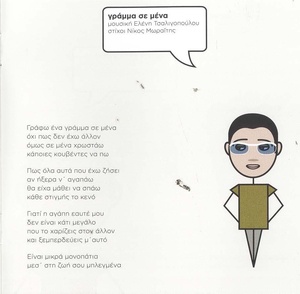 γράμμα σε μένα
μουσική Ελένη Τσαλιγοπούλου
στίχοι Νίκος Μωραΐτης
Γράφω ένα γράμμα σε μένα
όχι πως δεν έχω άλλον
όμως σε μένα χρωστάω
κάποιες κουβέντες να πω
Πως όλα αυτά που έχω ζήσει
αν ήξερα ν' αγαπάω
θα είχα μάθει να σπάω
κάθε στιγμής το κενό
Γιατί η αγάπη εαυτέ μου
δεν είναι κάτι μεγάλο
που το χαρίζεις στον άλλον
και ξεμπερδεύεις μ'αυτό
Είναι μικρά μονοπάτια
μεσ' στη ζωή σου μπλεγμένα